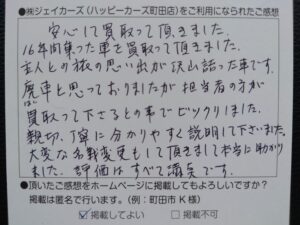 ●㈱ジェイカーズ(ハッピーカーズ町田店)をご利用になられたご感想
安心して買取って頂きました。
16年間乗った車を買取って頂きました。
主人との旅の思い出が沢山詰った車です。
廃車と思っておりましたが担当者の方が
買取って下さるとの事でビックリしました。
親切、丁寧に分かりやすく説明して下さいました。
大変な名義変更もして頂きまして本当に助かり
ました。評価はすべて満点です。
●頂いたご感想をホームページに掲載してもよろしいですか?
掲載は匿名で行います。(例:町田市 K 様)
☑掲載してよい □掲載不可